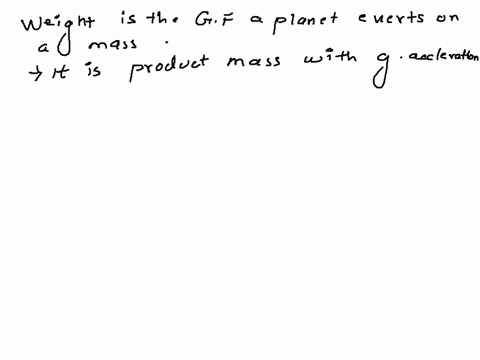 Weight is the G.F a planet exerts on
a mass.
→ It is product mass with g. accleration